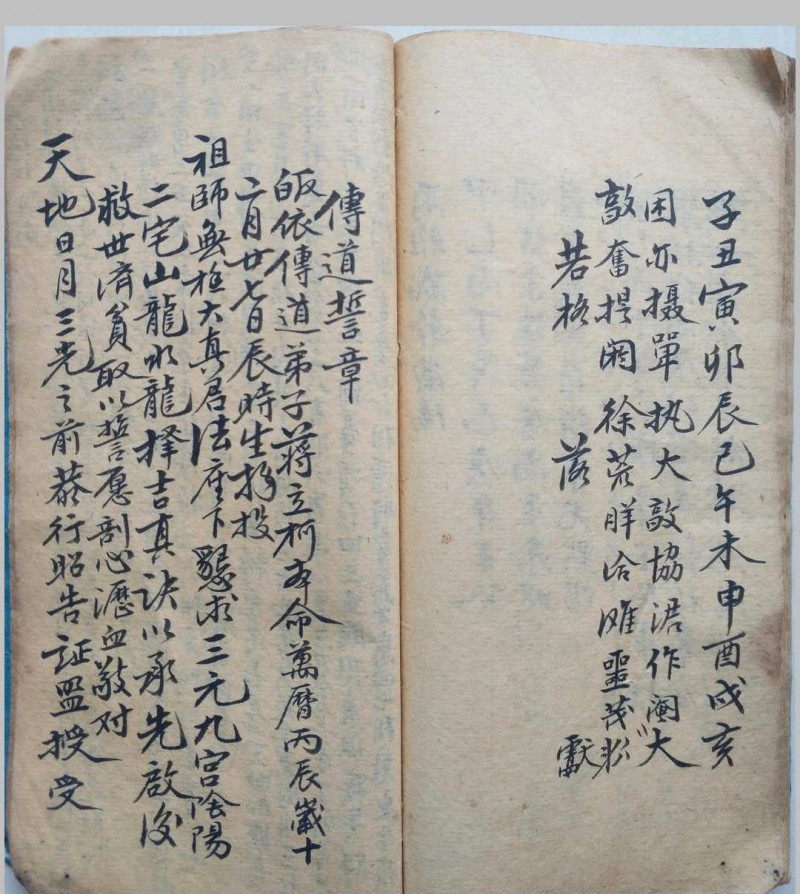 子丑寅卯辰巳午未申酉戌亥
困亦摄單执大敦協涒作阉大
敦奮提閼徐荒牂洽灘噩茂淵
若格 落 獻
傳道誓章
皈依傳道弟子蔣立柯本命萬曆丙辰歲十
二月廿七日辰時生投
祖師無極大真君法座下懇求三元九宮陰陽
二宅山龍水龍择吉真訣以承先啟後
救世濟貧取以誓愿剖心瀝血敬对
天地日月三光之前恭行昭告証盟授受